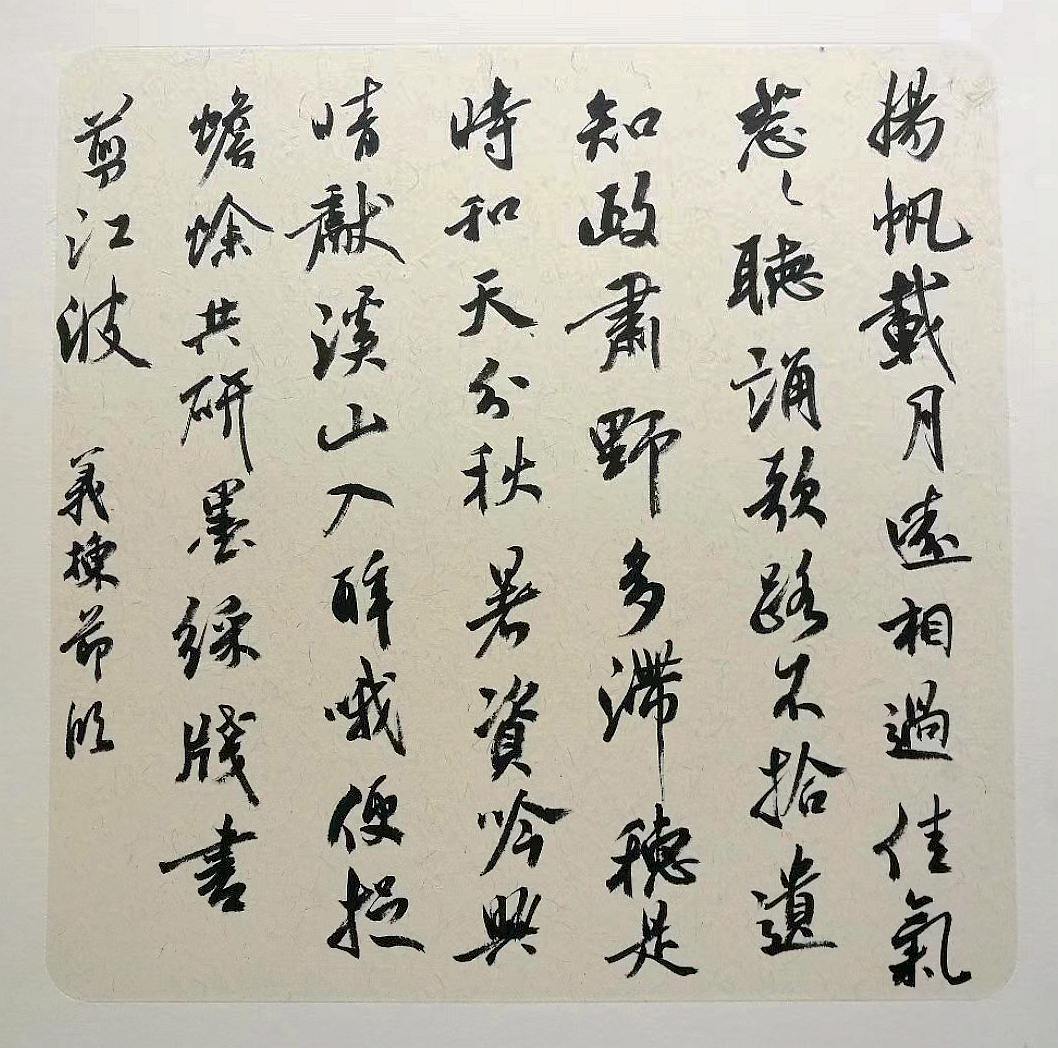 揚帆載月遠相過佳氣
葱々聽誦歌路不拾遺
知政肅野多滯穗是
時和天分秋暑資吟興
晴獻溪山入醉哦便捉
蟾蜍共研墨綵牋書
剪江波
義棟節臨